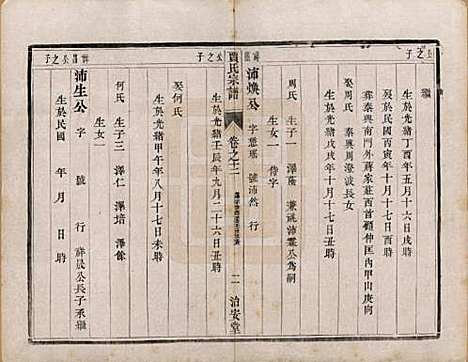 繼
生於光緒丁酉年五月十六日戌時
歿於民國十六年八月十日寅時
葬泰興南門外蔣家莊西首顧仲匡內甲山庚向
娶周氏 泰興周澄波長女
生於光緒戊戌年八月十七日戌時
周氏 生子一 澤蔭 兼祧沛霖公為嗣
生女一 侍字
公之子
沛煥公 字慧瑤 號沛然 行
賈氏宗譜
卷之十二
二 治安堂
生於光緒壬辰年九月二十六日丑時
娶何氏
生於光緒甲午年八月十七日未時
何氏 生子三 澤仁 澤培 澤餘
生女一
公之子
沛生公 字 號 行 祥晨公長子承繼
生於民國 年 月 日 時